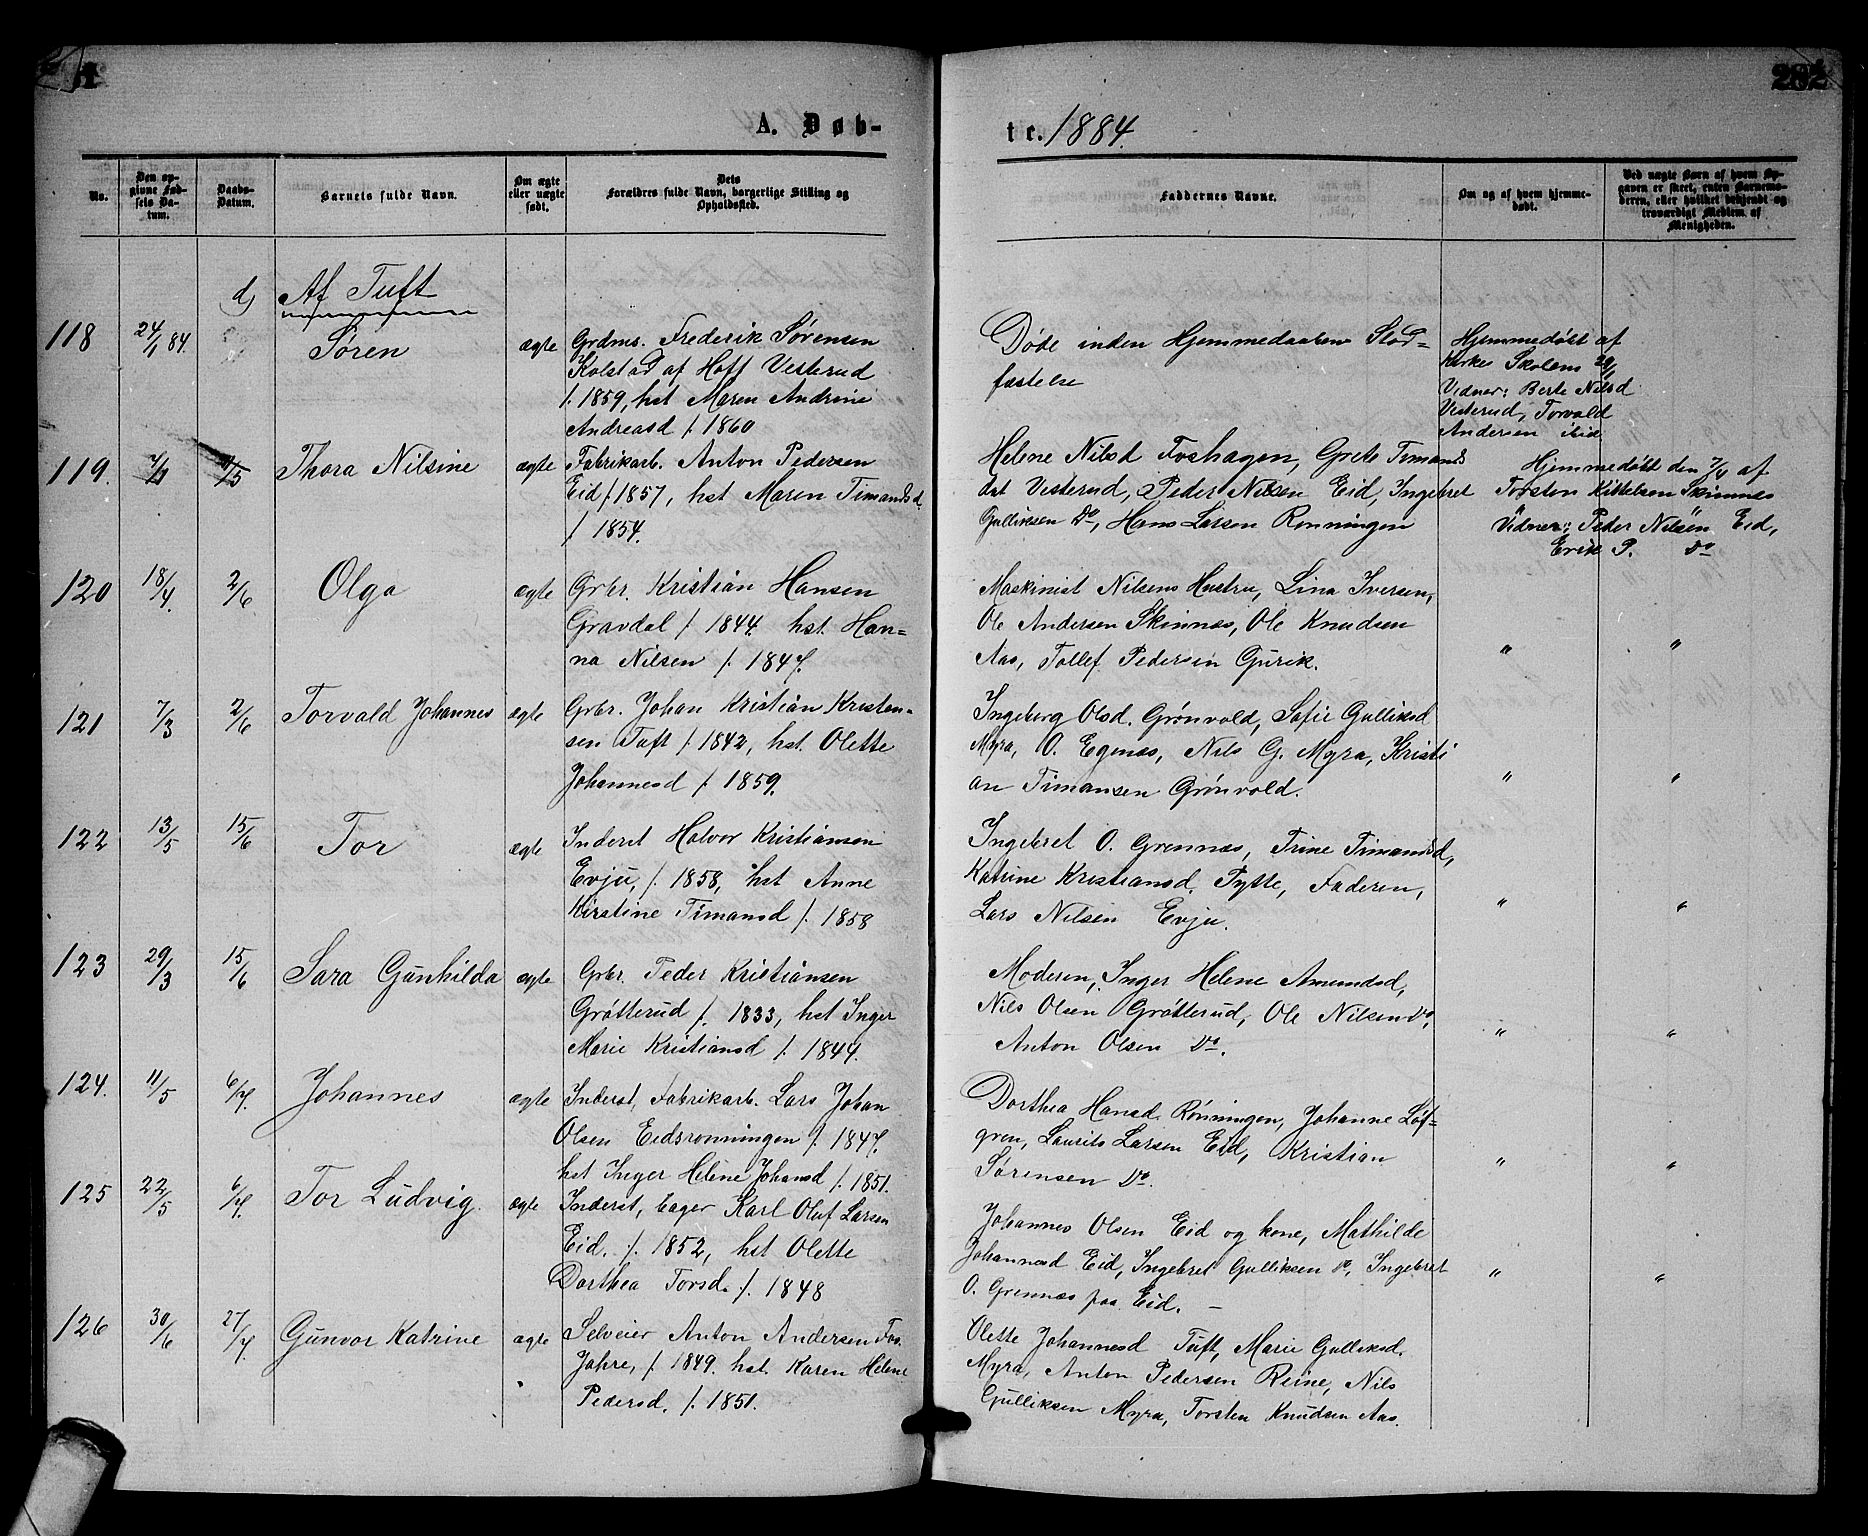 282
A. Døb-
te. 1884.
No.
Den op-
givne Fød-
sels Da-
tum.
Daabs-
Datum.
Barnets fulde Navn.
Om ægte
eller uægte
født.
Dets
Forældres fulde Navn, borgerlige Stilling og
Opholdssted.
Faddernes Navne.
Om og af hvem hjemme-
døbt.
Ved uægte Børn af hvem Op-
gaven er skeet, enten Barnemo-
deren, eller hvilket bekjendt og
troværdigt Medlem af
Menigheden.
d) Af Tuft
118 24/1 84. Søren ægte Grdms. Frederik Sørensen
Kolstad af Hoff Vesterud
f. 1859, hst Maren Andrine
Andreasd f. 1860
Døde inden Hjemmedaaben Stad-
fæstelse
Hjemmedøbt af
Kirke Skolem 29/1
Vidner: Berte Nilsd
Vesterud, Torvald
Andersen ibid
119. Thora Nilsine ægte Fabrikarb. Anton Pedersen
Eid f. 1857, hst Maren Timandsd.
f 1854.
Helene Nilsd Foshagen, Grete Timands
dat Vesterud, Peder Nilsen Eid, Ingebret
Gulliksen Do, Hans Larsen Rønningen
Hjemmedøbt den af
Torsten Kittelsen Skinnes
Vidner: Peder Nilsen Eid,
Erik P. Do
120 18/4. 2/6. Olga ægte Grbr. Kristian Hansen
Gravdal f. 1844. hst. Han-
na Nilsen f. 1847.
Maskinist Nilsens Hustru, Lina Iversen,
Ole Andersen Skinnes, Ole Knudsen
Aas, Tollef Pedersen Gurik.
" "
121 7/3 2/6 Torvald Johannes ægte Grbr. Johan Kristian Kristen-
sen Tuft f. 1842, hst. Olette
Johannesd f. 1859.
Ingeborg Olsd. Grønvold, Sofie Gulliksd
Myra, O. Egenæs, Nils G. Myra, Kristi
an Timansen Grønvold.
" "
122 13/5 15/6 Tor ægte Inderst Halvor Kristiansen
Evju, f. 1858, hst Anne
Kirstine Timansd f. 1858
Ingebret O. Grennæs, Trine Timansd,
Katrine Kristiansd. Pytte, Faderen,
Lars Nilsen Evju.
" "
123 29/3 15/6 Sara Gunhilda ægte Grbr. Peder Kristiansen
Grøtterud f. 1833, hst Inger
Marie Kristiansd f. 1844.
Moderen, Inger Helene Amundsd,
Nils Olsen Grøtterud, Ole Nilsen Do,
Anton Olsen Do.
" "
124. 11/5 6/7. Johannes ægte Inderst, Fabrikarb. Lars Johan
Olsen Eidsrønningen f. 1847.
hst Inger Helene Johansd f. 1851.
Dorthea Hansd. Rønningen, Johanne Løf-
gren, Laurits Larsen Eid, Kristian
Sørensen Do.
" "
125 22/5 6/7. Tor Ludvig. ægte Inderst, Bager Karl Oluf Larsen
Eid. f. 1852, hst Olette
Dorthea Torsd. f. 1848
Johannes Olsen Eid og kone, Mathilde
Johannesd Eid, Ingebret Gulliksen do, Ingebret
O. Grennæs paa Eid. —
" "
126 30/6 27/7. Gunvor Katrine ægte Selveier Anton Andersen Fos
Jahre, f. 1849. hst. Karen Helene
Pedersd. f. 1851.
Olette Johannesd Tuft, Marie Gulliksd.
Myra, Anton Pedersen Reine, Nils
Gulliksen Myra, Torsten Knudsen Aas.